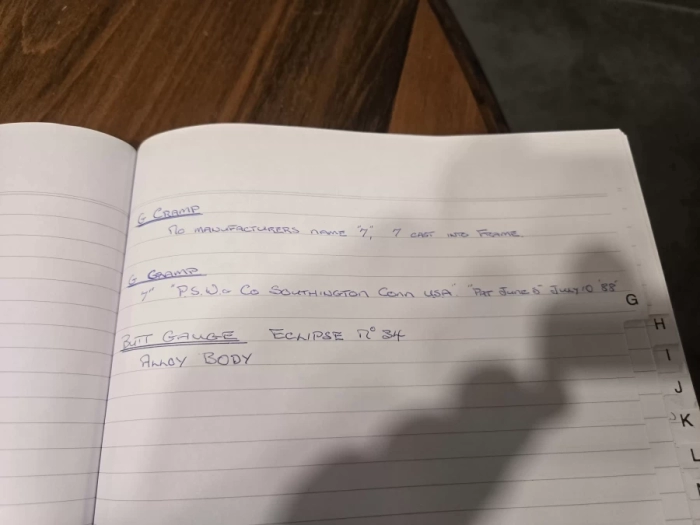 G CRAMP
No MANUFACTURERS NAME "7", 7 CAST INTO FRAME
G CRAMP
7" "P.S.W.& Co SOUTHINGTON Conn USA" "PAT June 5 July 10 '88'
BUTT GAUGE ECLIPSE No 34
ALLOY BODY
G
H
I
J
K
L